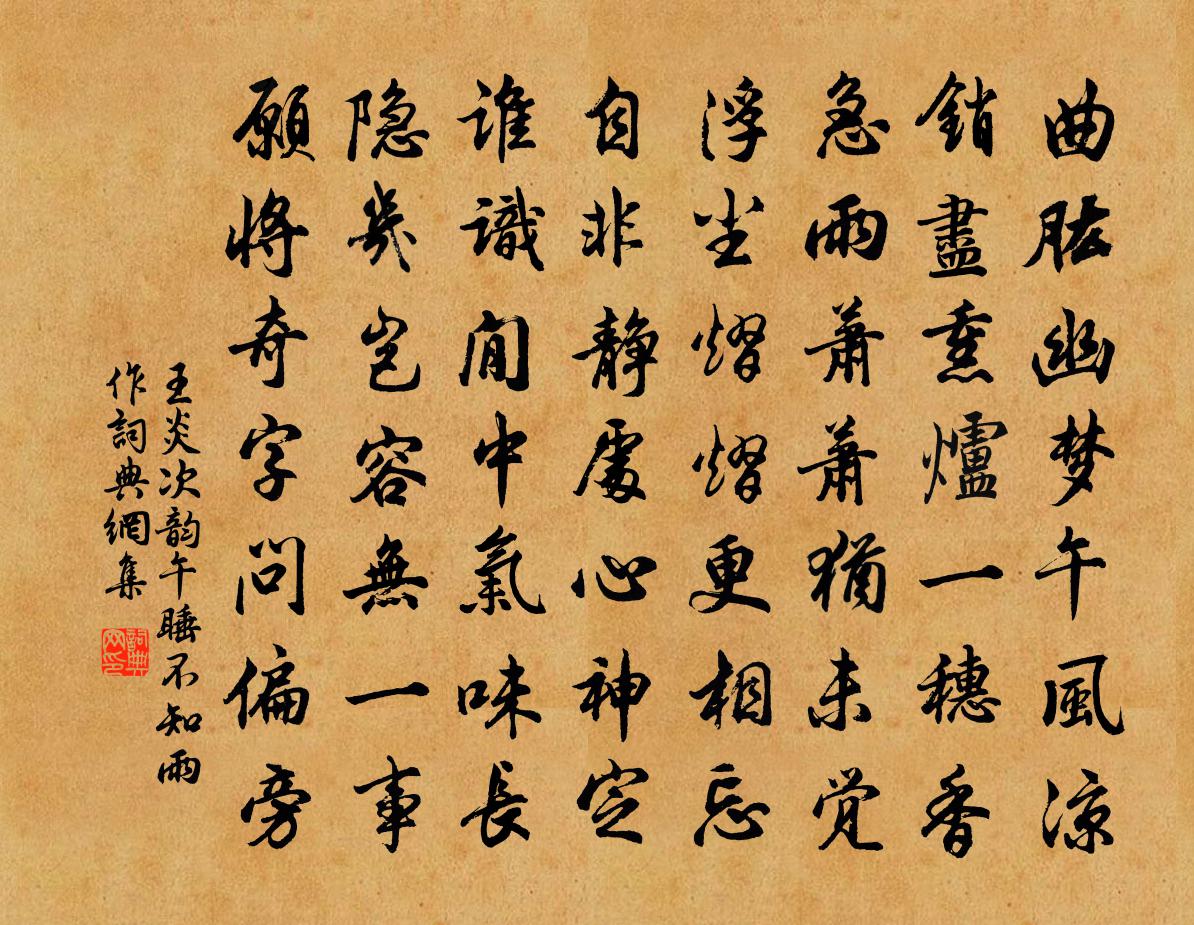 曲肱幽梦午風凉
銷盡熏爐一穗香
急雨萧萧猶未觉
浮尘熠熠更相忘
自非靜處心神定
谁識閒中氣味長
隐几岂容無一事
願将奇字问偏旁
王炎次韵午睡不知雨
作詞典網集
詞典
网印